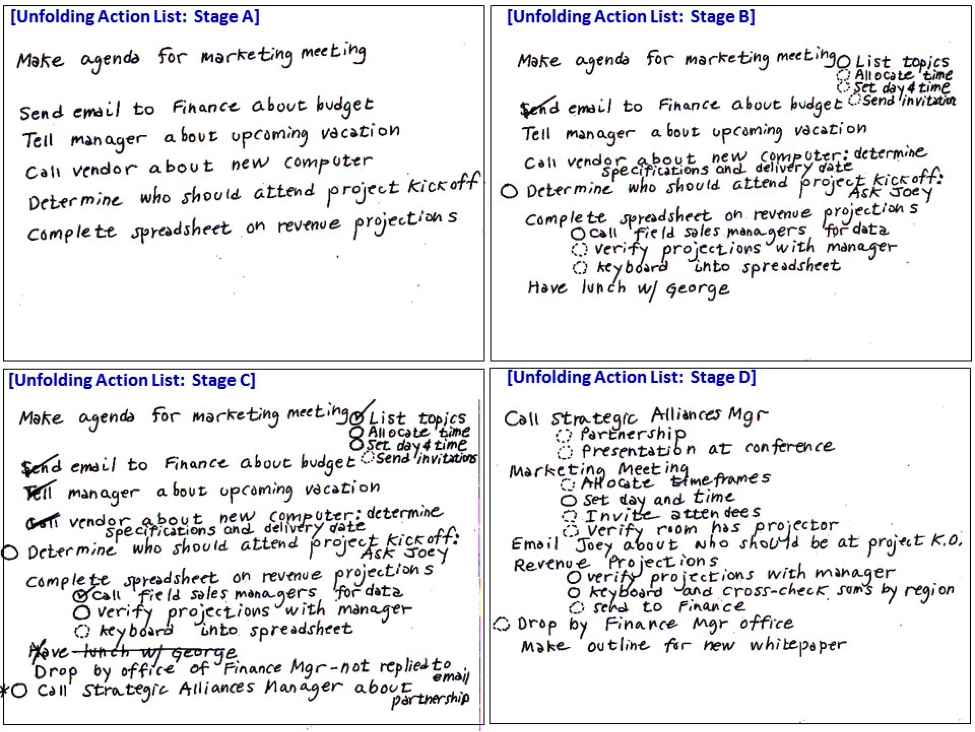 [Unfolding Action List: Stage A]
Make agenda for marketing meeting
Send email to Finance about budget
Tell manager about upcoming vacation
Call vendor about new computer
Determine who should attend project kickoff
Complete spreadsheet on revenue projections
[Unfolding Action List: Stage B]
Make agenda for marketing meeting List topics
Allocate time
Set day & time
Send email to Finance about budget Send invitation
Tell manager about upcoming vacation
Call vendor about new computer: determine
specifications and delivery date
Determine who should attend project kickoff:
Ask Joey
Complete spreadsheet on revenue projections
Call field sales managers for data
verify projections with manager
keyboard into spreadsheet
Have lunch w/ George
[Unfolding Action List: Stage C]
Make agenda for marketing meeting List topics
Allocate time
Set day & time
Send email to Finance about budget Send invitations
Tell manager about upcoming vacation
Call vendor about new computer: determine
specifications and delivery date
Determine who should attend project kickoff:
Ask Joey
Complete spreadsheet on revenue projections
Call field sales managers for data
verify projections with manager
keyboard into spreadsheet
Have lunch w/ George
Drop by office of Finance Mgr-not replied to
email
*Call Strategic Alliances Manager about
partnership
[Unfolding Action List: Stage D]
Call Strategic Alliances Mgr
Partnership
Presentation at conference
Marketing Meeting
Allocate timeframes
Set day and time
Invite attendees
Verify room has projector
Email Joey about who should be at project K.O.
Revenue Projections
verify projections with manager
keyboard and cross-check sums by region
send to Finance
Drop by Finance Mgr office
Make outline for new whitepaper